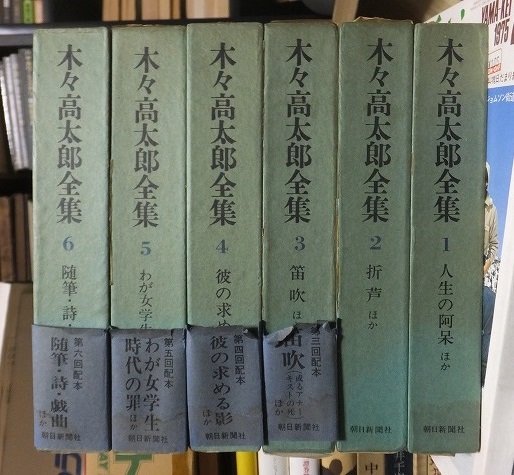 木々高太郎全集
6
随筆・詩・
第六回配本
随筆・詩・戯曲
ほか
朝日新聞社
木々高太郎全集
5
わが女学生
第五回配本
わが女学生
時代の罪
ほか
朝日新聞社
木々高太郎全集
4
彼の求め
第四回配本
彼の求める影
ほか
朝日新聞社
木々高太郎全集
3
笛吹
ほ
第三回配本
笛吹
(或るアナー
キストの死)
ほか
朝日新聞社
木々高太郎全集
2
折芦
ほか
朝日新聞社
木々高太郎全集
1
人生の阿呆
ほか
朝日新聞社
YAMA-KEI
1975